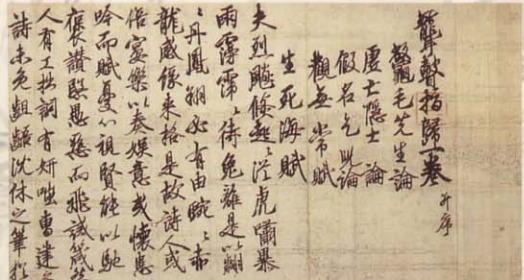 聾瞽指歸一卷 并序
鼈毛先生論
虛亡隱士論
假名乞兒論
觀無常賦
生死海賦
夫烈飈倏起々從虎嘯暴
雨霶霈々待兔離是以翩
々丹鳳翔必有由蜿々赤
龍感緣來格是故詩人或
倍宴樂以奏娛意或懷患
吟而賦憂心詛賢能以馳
褒讚慜愚惡而飛誡箴
人有工拙詞有妍嗤曹建
詩未免齟齬沈休之筆猶